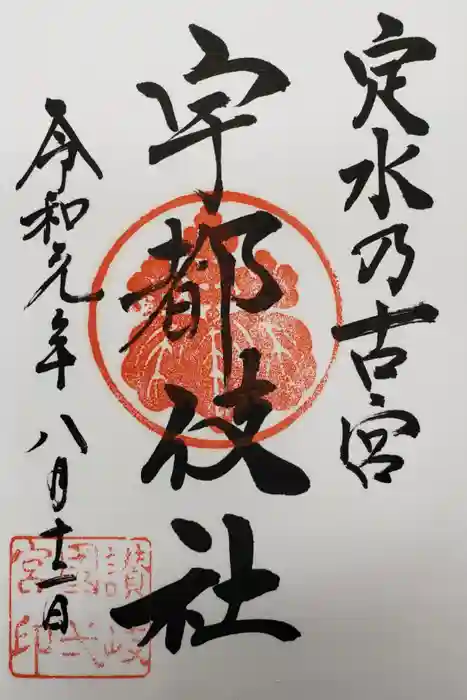 定水乃古宮
宇都伎社
令和元年八月十二日
讃岐
國弍
宮印